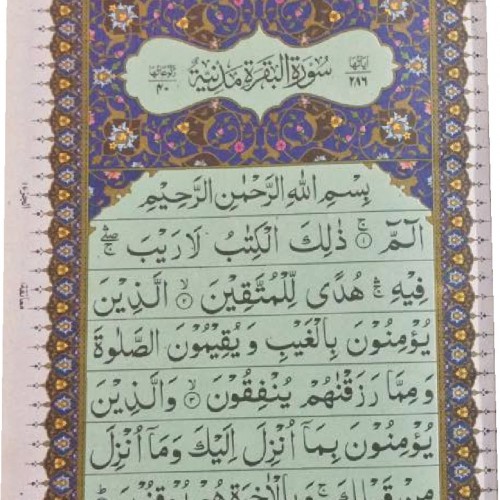 اٰیاتها ٢٨٦ سُوْرَةُ الْبَقَرَةِ مَدَنِيَّةٌ رکوعاتها ٤٠
بِسْمِ اللهِ الرَّحْمٰنِ الرَّحِيْمِ
الٓمّٓ ۚ ١ ذٰلِكَ الْكِتٰبُ لَا رَيْبَ ۛۖ
فِيْهِ ۛ هُدًى لِّلْمُتَّقِيْنَ ۙ ٢ الَّذِيْنَ
يُؤْمِنُوْنَ بِالْغَيْبِ وَيُقِيْمُوْنَ الصَّلٰوةَ
وَمِمَّا رَزَقْنٰهُمْ يُنْفِقُوْنَ ۙ ٣ وَالَّذِيْنَ
يُؤْمِنُوْنَ بِمَآ اُنْزِلَ اِلَيْكَ وَمَآ اُنْزِلَ
مِنْ قَبْلِكَ ۚ وَبِالْاٰخِرَةِ هُمْ يُوْقِنُوْنَ